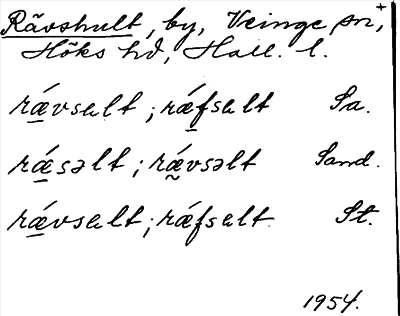 Rävshult, by, Veinge sn,+
Höks hd, Hall. l.
rǽvsult ; rǽfsult Sa.
rǽsəlt ; rǽvsəlt Sand.
rǽvsult ; rǽfsult St.
1954.